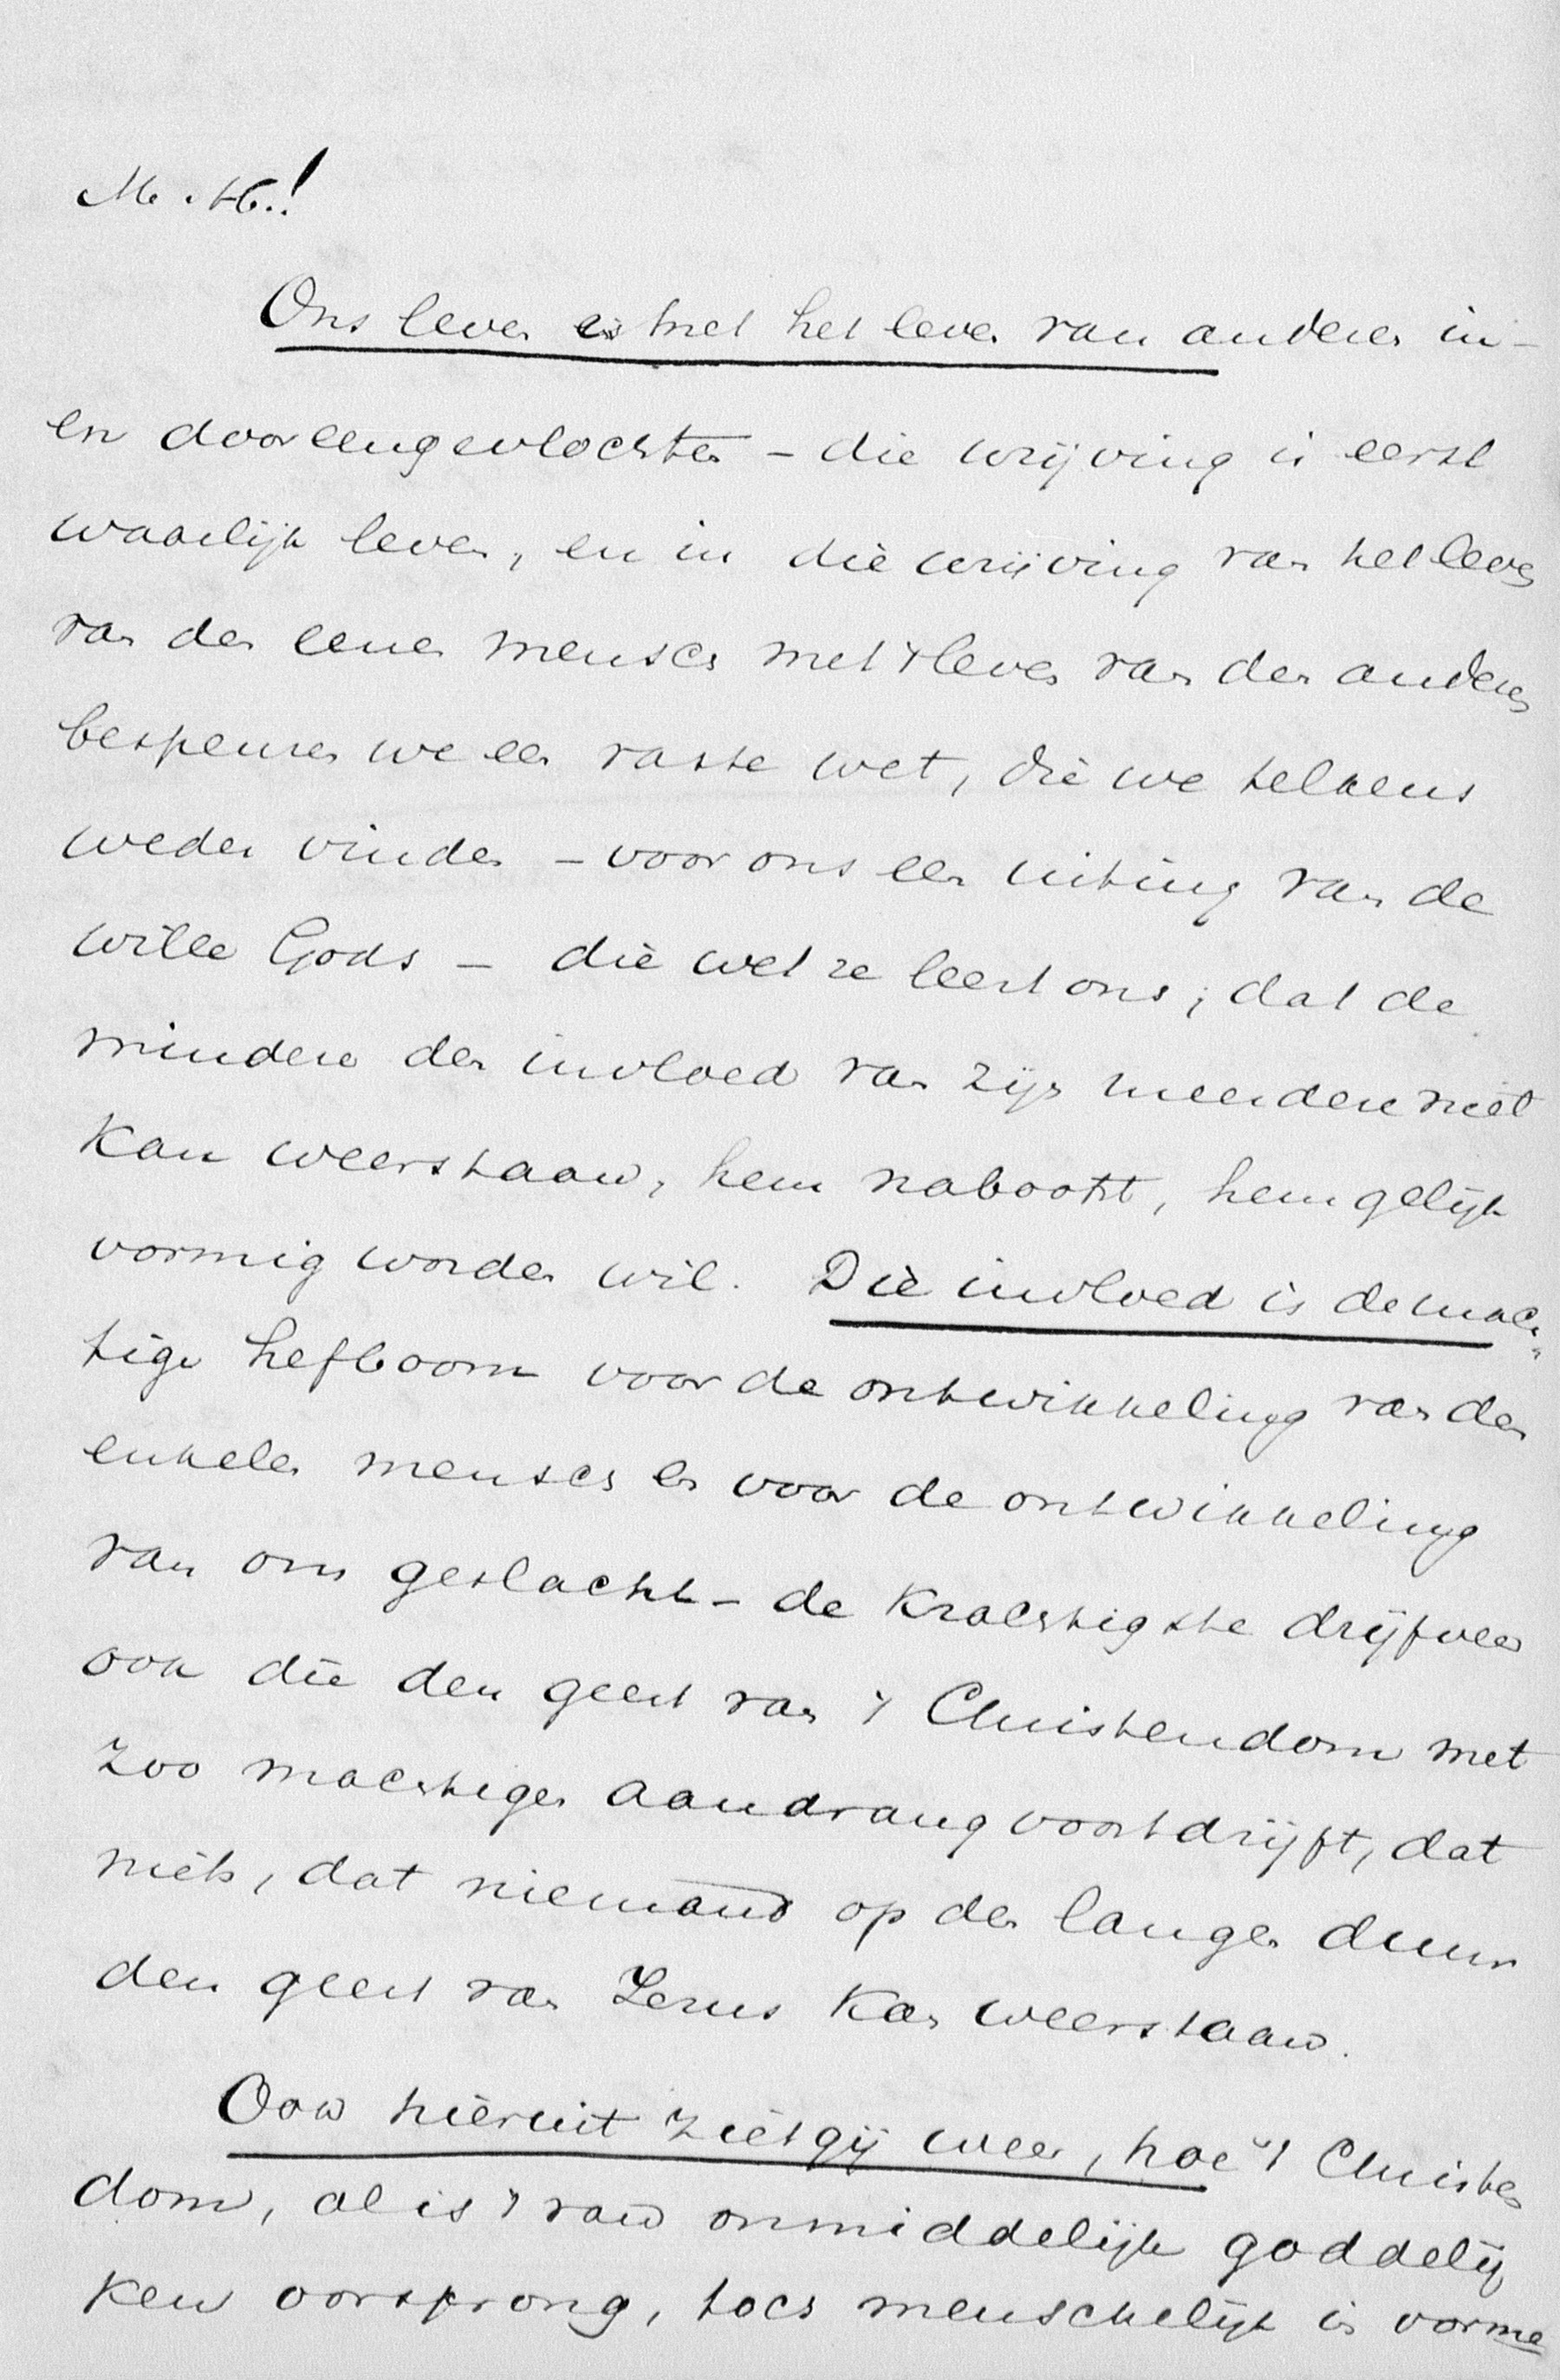 M. H.!
Ons leven is met het leven van anderen in-
en dooreengevlochten – die wrijving is eerst
waarlijk leven, en in die wrijving van het leven
van den eenen mensch met 't leven van den anderen
bespeuren we een vaste wet, die we telkens
weder vinden – voor ons een uiting van de
wille Gods – die wet ze leert ons, dat de
mindere den invloed van zijn meerdere niet
kan weerstaan, hem nabootst, hem gelijk
vormig worden wil. Die invloed is de mach-
tige hefboom voor de ontwikkeling van den
enkelen mensch en voor de ontwikkeling
van ons geslacht – de krachtigste drijfveer
ook die den geest van 't Christendom met
zoo machtigen aandrang voortdrijft, dat
niets, dat niemand op den langen duur
den geest van Jezus kan weerstaan.
Ook hieruit ziet gij weer, hoe 't Christen
dom, al is 't van onmiddelijk goddelij
ken oorsprong, toch menschelijk is vorme